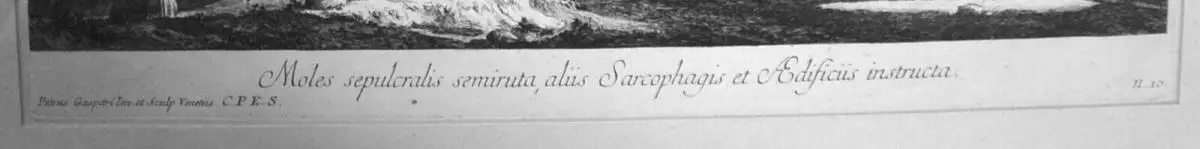 Moles sepulcralis semiruta, aliis Sarcophagis et Ædificiis instructa.
Petrus Gaspari Inv. et Sculp Venetus C.P.E.S.
n. 10